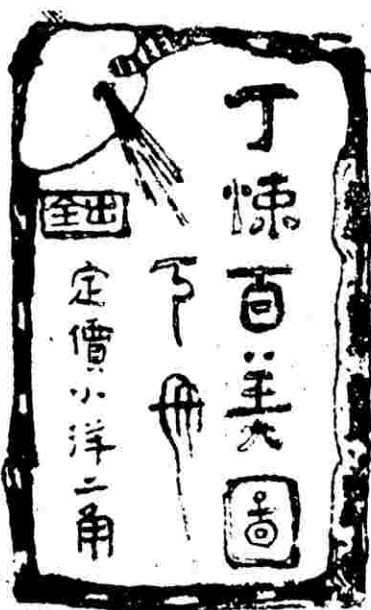 丁悚百美圖
冊
出全
定價小洋二角